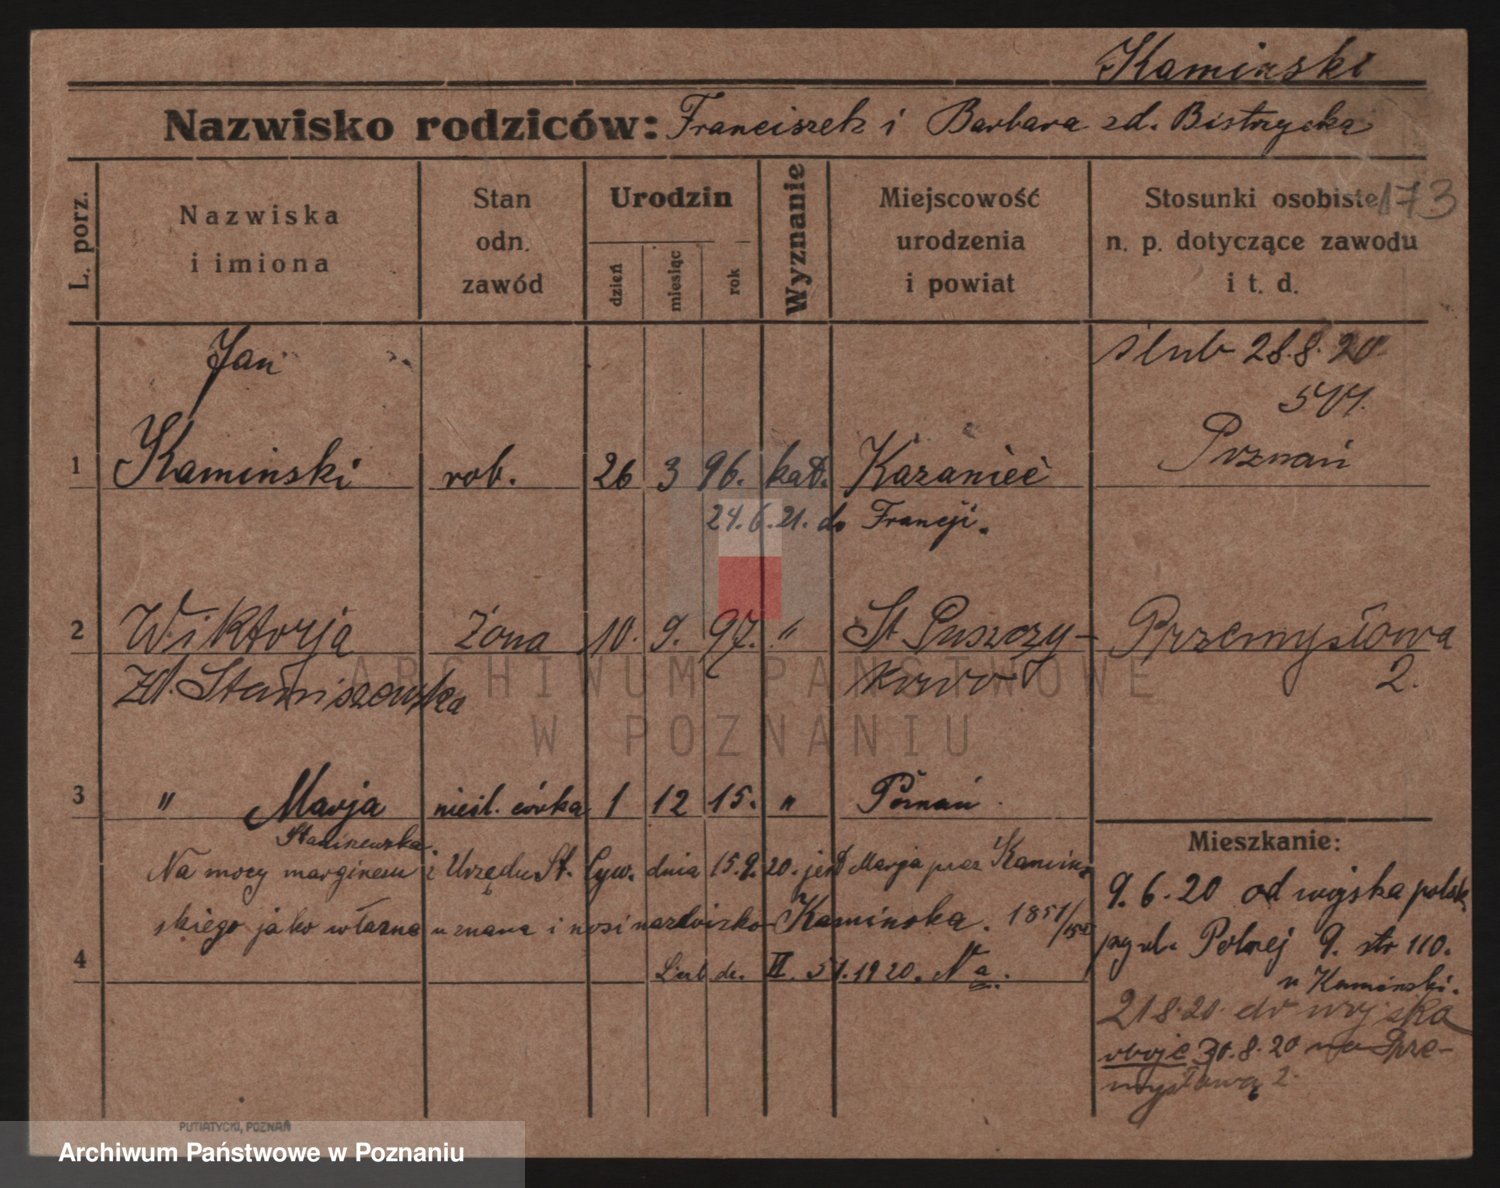 Kamiński
Nazwisko rodziców: Franciszek i Barbara zd. Bistrzycka
173
L. porz.
Nazwiska
i imiona
Stan
odn.
zawód
Urodzin
dzień
miesiąc
rok
Wyznanie
Miejscowość
urodzenia
i powiat
Stosunki osobiste
n. p. dotyczące zawodu
i t. d.
Jan
ślub 28.8.20
Poznań
1 Kamiński rob. 26 3 96. kat. Kazanieć
24.6.21. do Francji.
2 Wiktorja żona 10. 9. 97. " St Puszczy-
kowo
zd. Staniszewska
Przemysłowa
2.
3 " Marja nieśl. córka 1 12 15. " Poznań.
Staniszewska
Na mocy marginesu z Urzędu St. Cyw. dnia 15.9.20. jest Marja przez Kamiń-
skiego jako własna uznana i nosi nazwisko Kamińska. 1851/152
4 II. 51.1920. Na.
Mieszkanie:
9.6.20 od wojska polsk
przy ul. Polnej 9. str 110.
u Kamiński.
21.8.20. do wojska
oboje 30.8.20 na Prze-
mysłową 2.
PUTIATYCKI, POZNAŃ
ARCHIWUM PAŃSTWOWE
W POZNANIU
Archiwum Państwowe w Poznaniu